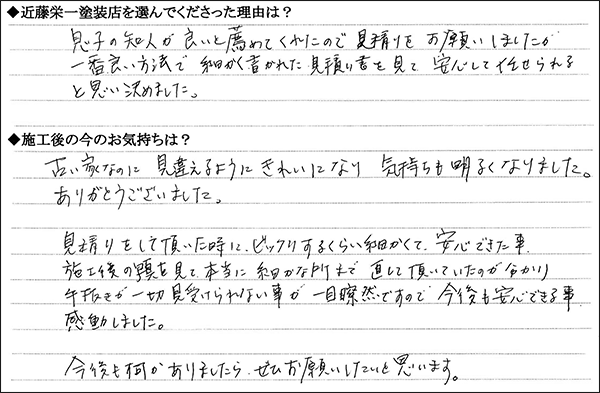 ◆近藤栄一塗装店を選んでくださった理由は？
息子の知人が良いと薦めてくれたので見積りをお願いしましたが
一番良い方法で細かく書かれた見積り書を見て安心して任せられる
と思い決めました。
◆施工後の今のお気持ちは？
古い家なのに見違えるようにきれいになり気持ちも明るくなりました。
ありがとうございました。
見積りをして頂いた時に、ビックリするくらい細かくて、安心できた事
施工後の写真を見て、本当に細かな所まで直して頂いていたのが分かり
手抜きが一切見受けられない事が一目瞭然ですので今後も安心できる事
感動しました。
今後も何かありましたら、ぜひお願いしたいと思います。